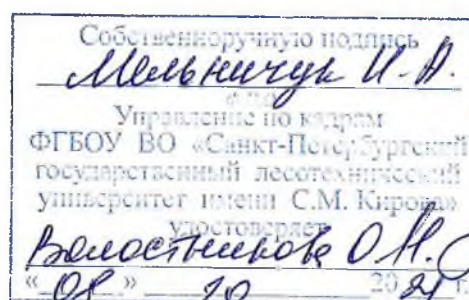 Собственноручную подпись
Мельничук И. А.
Ф.И.О.
Управление по кадрам
ФГБОУ ВО «Санкт-Петербургский
государственный лесотехнический
университет имени С.М. Кирова»
удостоверяет
О. Н.
« 08 » 10 2021 г.